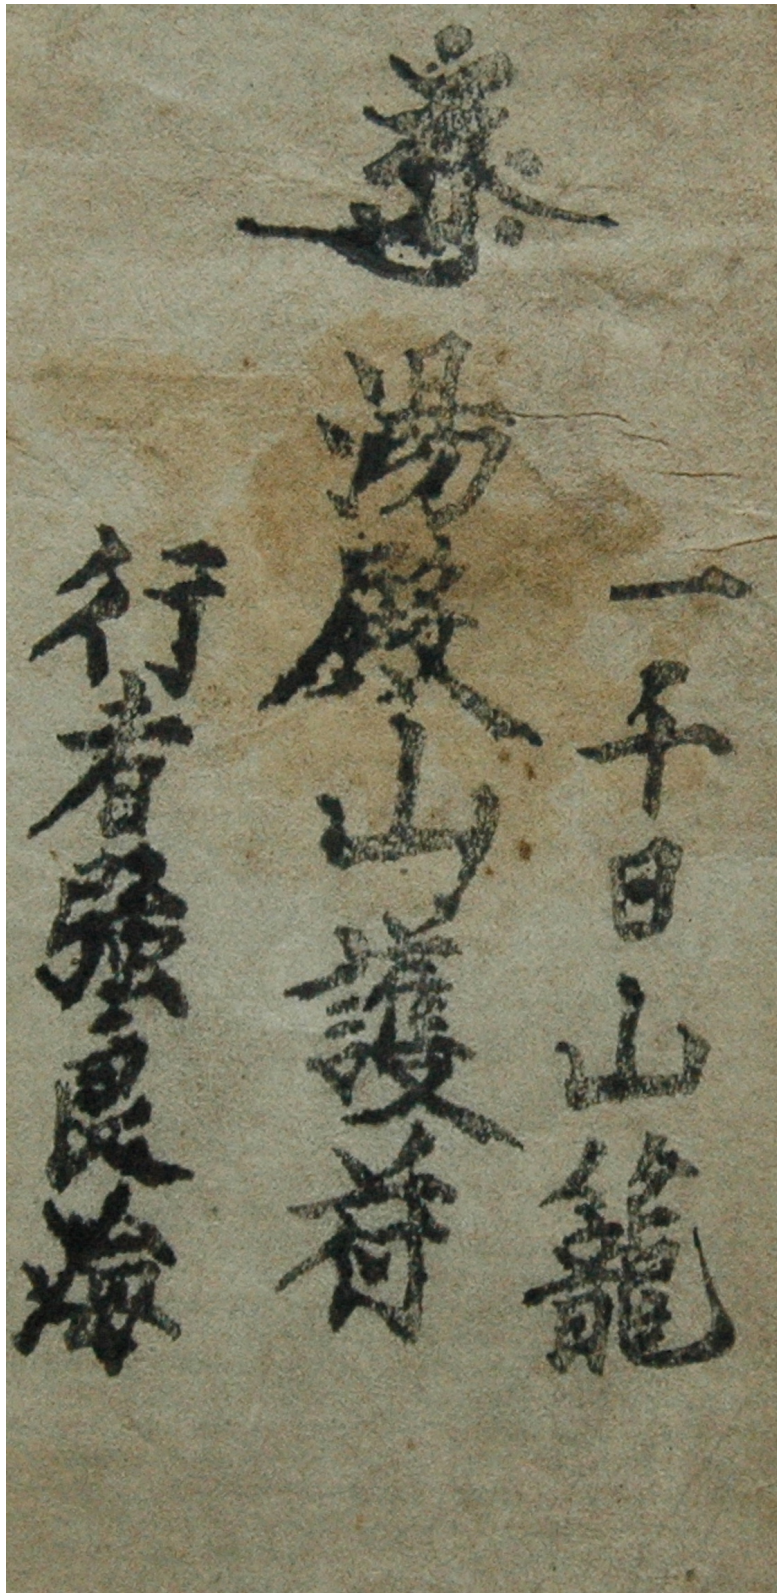 一千日山籠
湯殿山護符
行者強良海